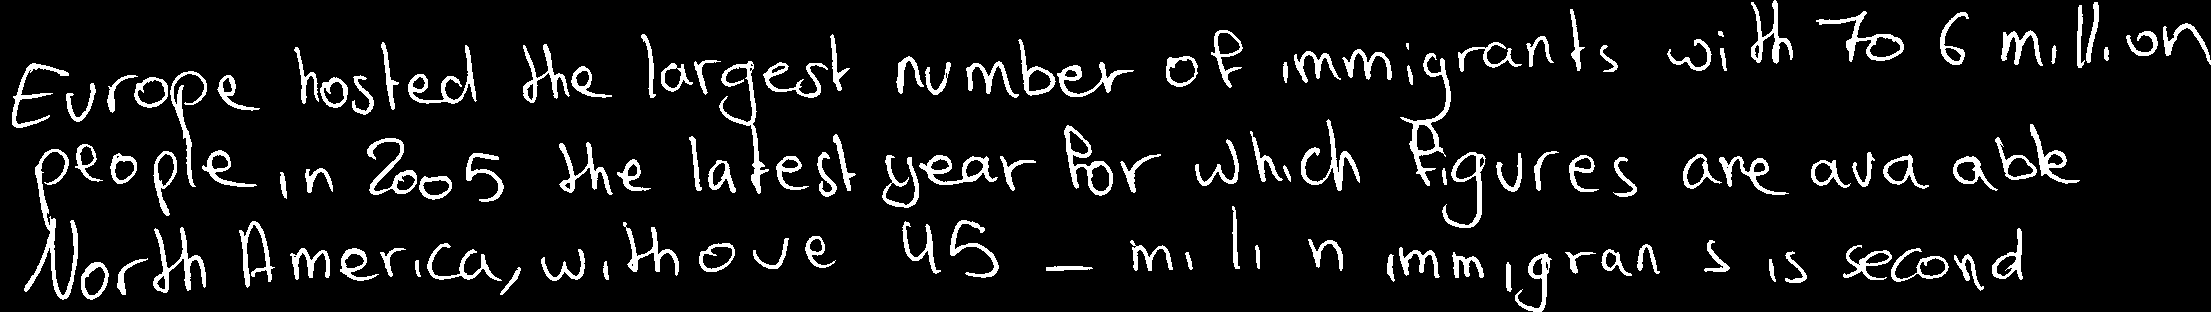 Europe hosted the largest number of immigrants with 70 6 million
people in 2005 the latest year for which figures are ava able
North America, with ove 45 _ mi li n immigran s is second